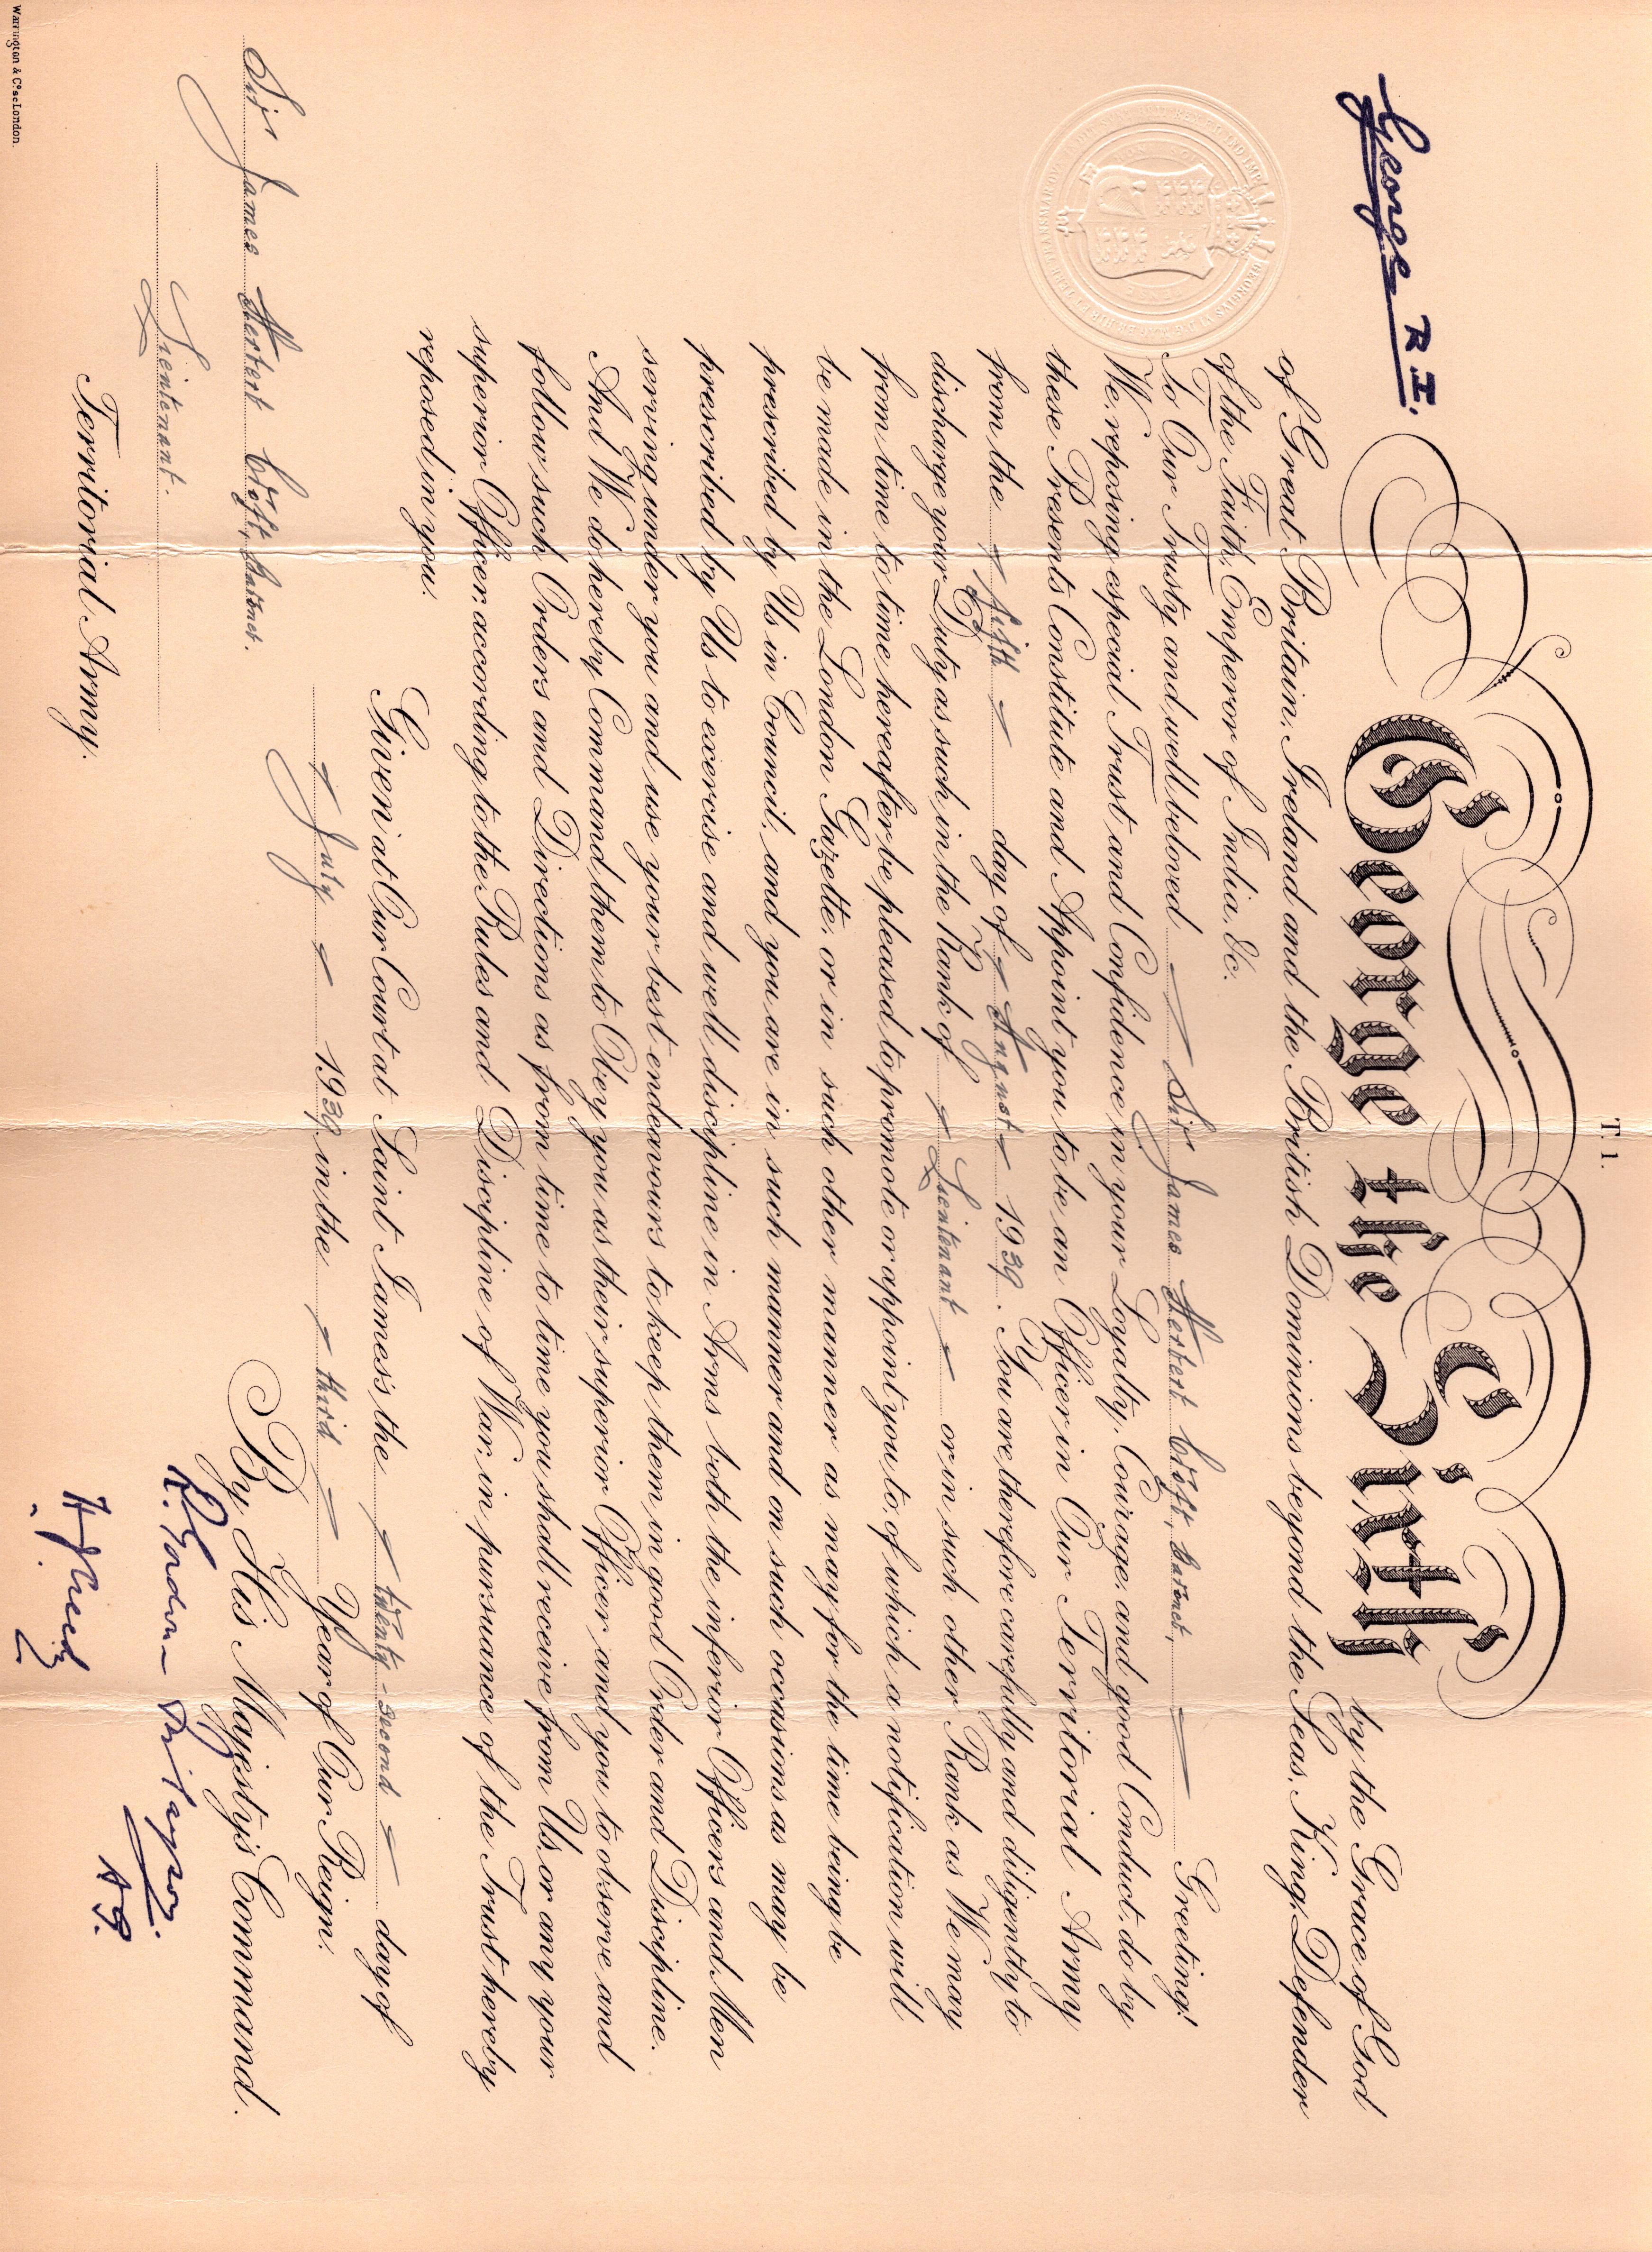 T. 1.
George R.I.
George the Sixth by the Grace of God
of Great Britain, Ireland and the British Dominions beyond the Seas, King, Defender
of the Faith, Emperor of India, &c.
To Our Trusty and well beloved Sir James Herbert Croft, Baronet, Greeting!
We, reposing especial Trust and Confidence in your Loyalty, Courage, and good Conduct, do by
these Presents Constitute and Appoint you to be an Officer in Our Territorial Army
from the fifth day of August 1939. You are therefore carefully and diligently to
discharge your Duty as such in the Rank of Lieutenant or in such other Rank as We may
from time to time hereafter be pleased to promote or appoint you to, of which a notification will
be made in the London Gazette, or in such other manner as may for the time being be
prescribed by Us in Council, and you are in such manner and on such occasions as may be
prescribed by Us to exercise and well discipline in Arms both the inferior Officers and Men
serving under you and use your best endeavours to keep them in good Order and Discipline.
And We do hereby Command them to Obey you as their superior Officer, and you to observe and
follow such Orders and Directions as from time to time you shall receive from Us, or any your
superior Officer, according to the Rules and Discipline of War, in pursuance of the Trust hereby
reposed in you.
Given at Our Court at Saint James's the twenty-second day of
July 1939 in the third Year of Our Reign.
By His Majesty's Command.
Sir James Herbert Croft, Baronet.
Lieutenant.
Territorial Army.
Warrington & Co. sc London.